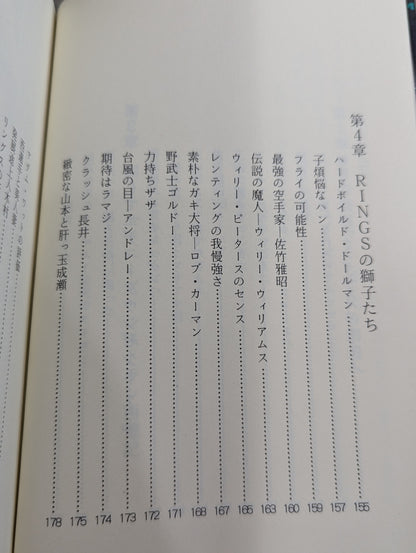 第4章 RINGSの獅子たち
ハードボイルド・ドールマン……155
子煩悩なハン……157
フライの可能性……159
最強の空手家―佐竹雅昭……160
伝説の魔人―ウィリー・ウィリアムス……163
ウィリー・ピータースのセンス……165
レンティングの我慢強さ……167
素朴なガキ大将―ロブ・カーマン……168
野武士ゴルドー……171
力持ちザザ……172
台風の目―アンドレー……173
期待はラマジ……174
クラッシュ長井……175
緻密な山本と肝っ玉成瀬……178